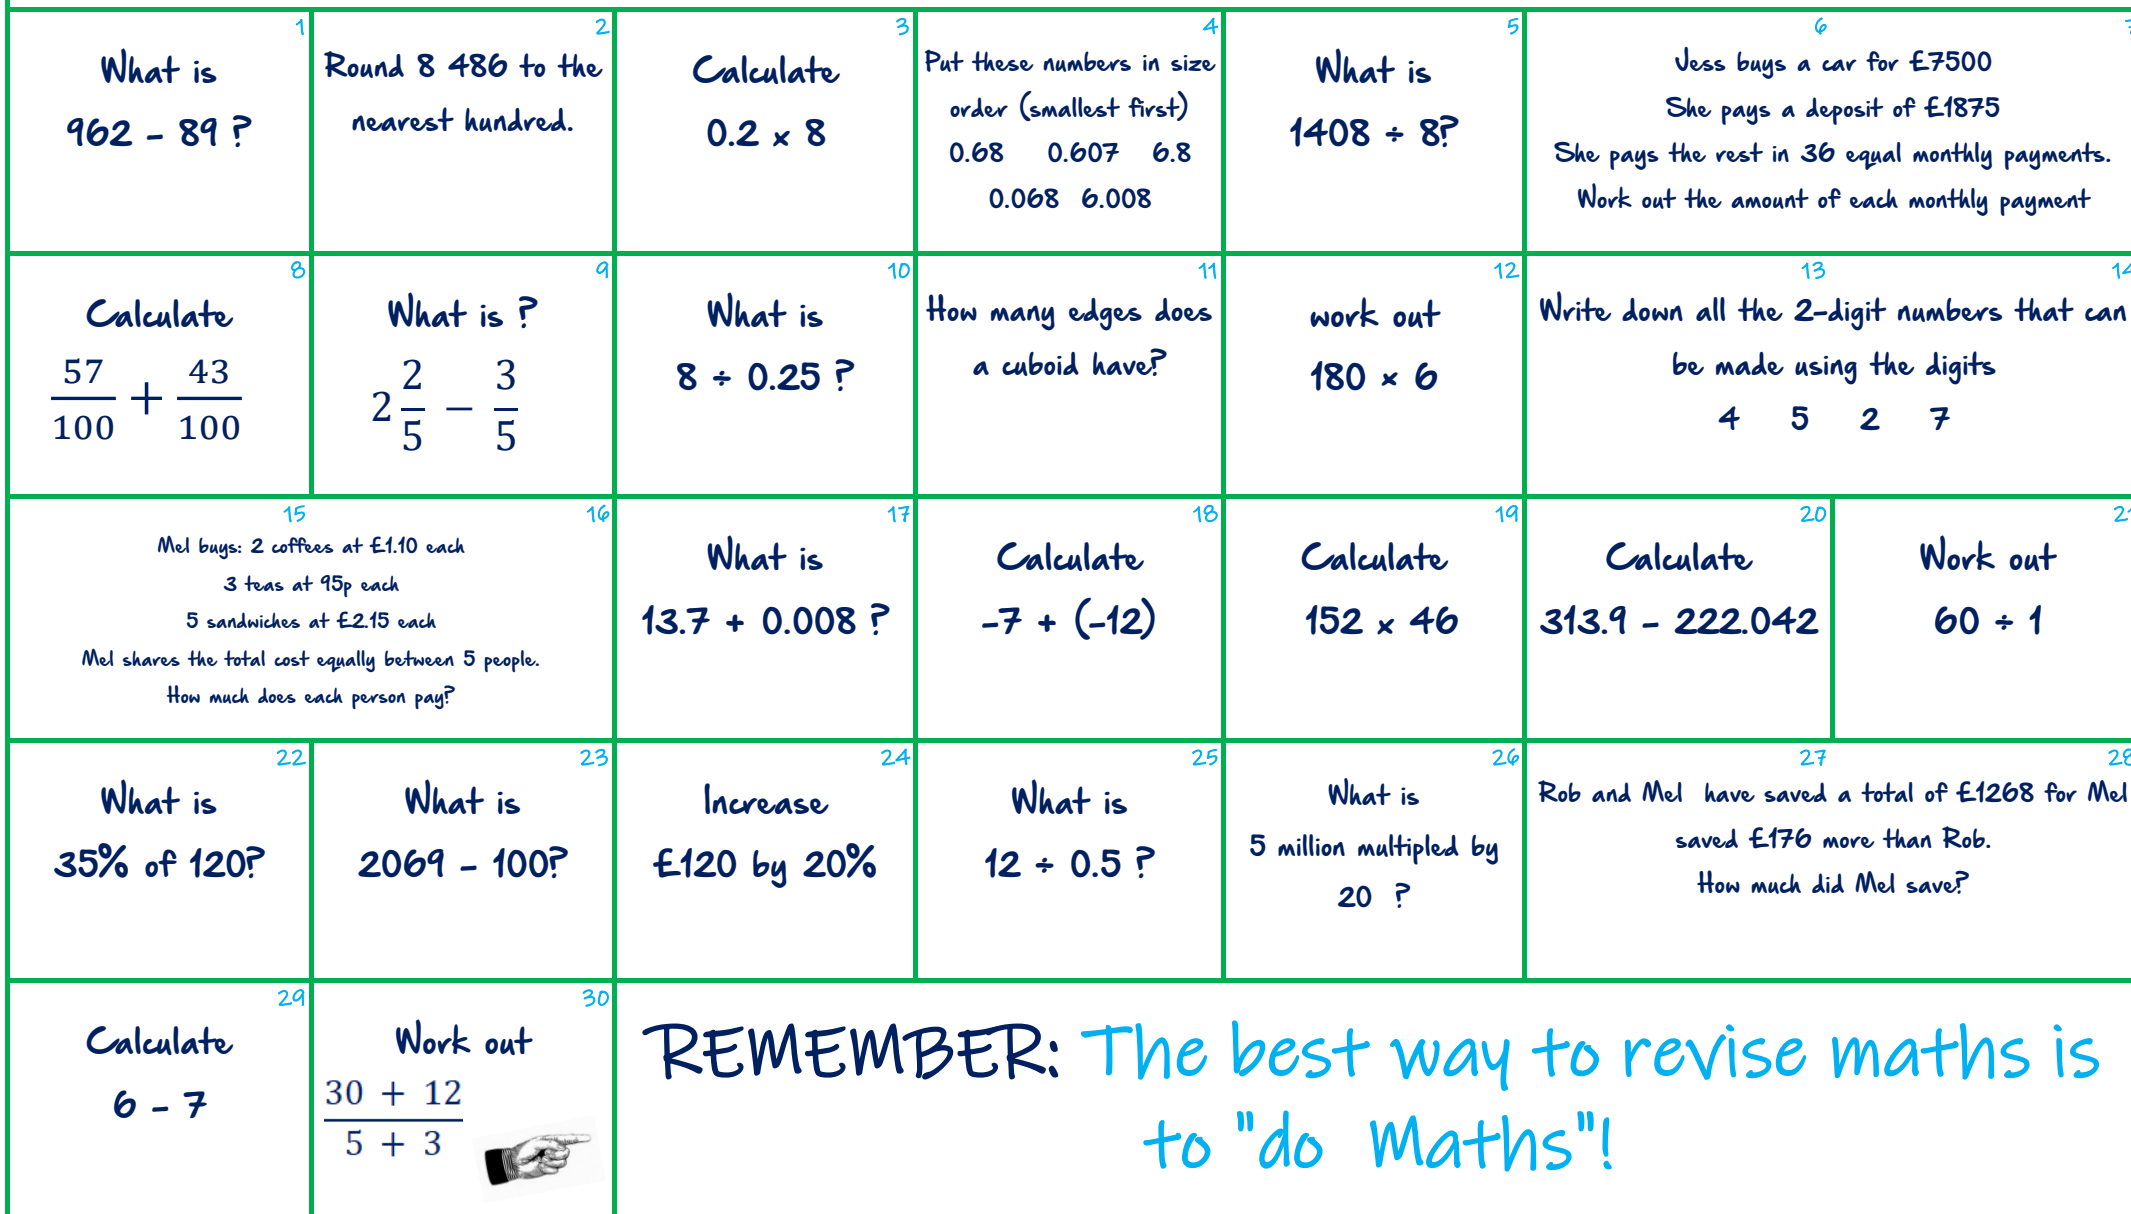 1
What is
962 - 89 ?
2
Round 8 486 to the
nearest hundred.
3
Calculate
0.2 x 8
4
Put these numbers in size
order (smallest first)
0.68 0.607 6.8
0.068 6.008
5
What is
1408 ÷ 8?
6
Jess buys a car for £7500
She pays a deposit of £1875
She pays the rest in 36 equal monthly payments.
Work out the amount of each monthly payment
8
Calculate
57/100 + 43/100
9
What is ?
2 2/5 − 3/5
10
What is
8 ÷ 0.25 ?
11
How many edges does
a cuboid have?
12
work out
180 × 6
13 14
Write down all the 2-digit numbers that can
be made using the digits
4 5 2 7
15 16
Mel buys: 2 coffees at £1.10 each
3 teas at 95p each
5 sandwiches at £2.15 each
Mel shares the total cost equally between 5 people.
How much does each person pay?
17
What is
13.7 + 0.008 ?
18
Calculate
-7 + (-12)
19
Calculate
152 x 46
20
Calculate
313.9 - 222.042
21
Work out
60 ÷ 1
22
What is
35% of 120?
23
What is
2069 - 100?
24
Increase
£120 by 20%
25
What is
12 ÷ 0.5 ?
26
What is
5 million multipled by
20 ?
27 28
Rob and Mel have saved a total of £1268 for Mel
saved £176 more than Rob.
How much did Mel save?
29
Calculate
6 - 7
30
Work out
30 + 12
5 + 3
REMEMBER: The best way to revise maths is
to "do Maths"!